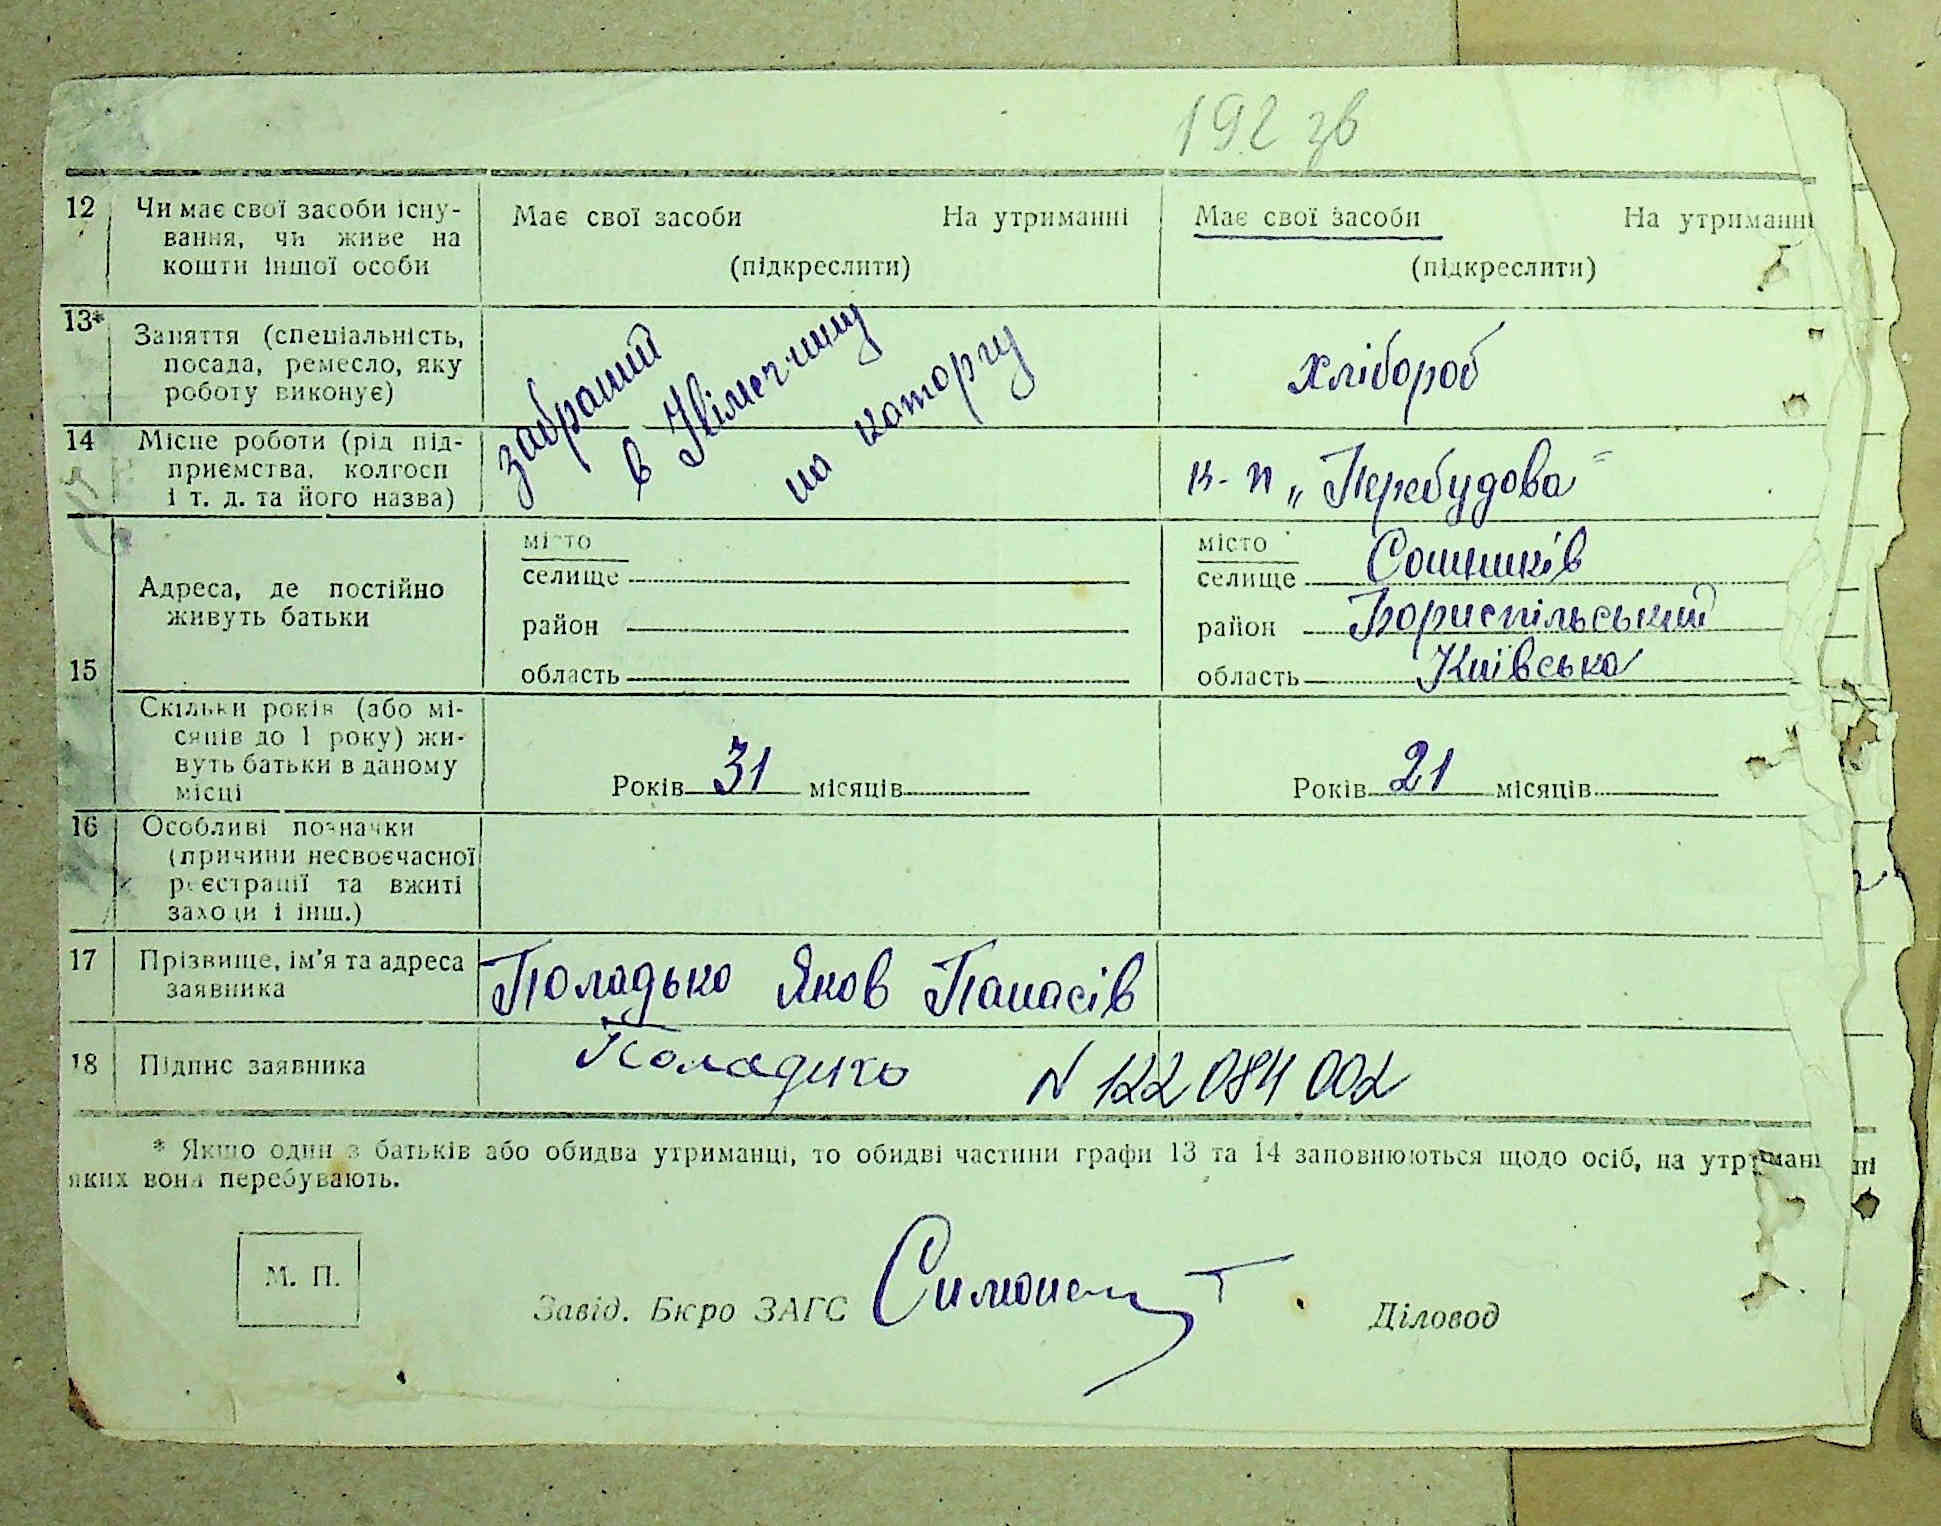 192 зв
12 Чи має свої засоби існу-
вання, чи живе на
кошти іншої особи
Має свої засоби На утриманні
(підкреслити)
Має свої засоби На утриманні
(підкреслити)
13* Заняття (спеціальність,
посада, ремесло, яку
роботу виконує)
забраний
в Німеччину
на каторгу
хлібороб
14 Місце роботи (рід під-
приємства, колгосп
і т. д. та його назва)
к-п „Перебудова"
15 Адреса, де постійно
живуть батьки
місто
селище
район
область
місто
селище Сошників
район Бориспільський
область Київська
Скільки років (або мі-
сяців до 1 року) жи-
вуть батьки в даному
місці
Років 31 місяців
Років 21 місяців
16 Особливі позначки
(причини несвоєчасної
реєстрації та вжиті
заходи і інш.)
17 Прізвище, ім'я та адреса
заявника
Поладько Яков Панасів
18 Підпис заявника
Поладико N 122 084 002
* Якщо один з батьків або обидва утриманці, то обидві частини графи 13 та 14 заповнюються щодо осіб, на утриманні
яких вони перебувають.
М. П.
Завід. Бюро ЗАГС
Діловод